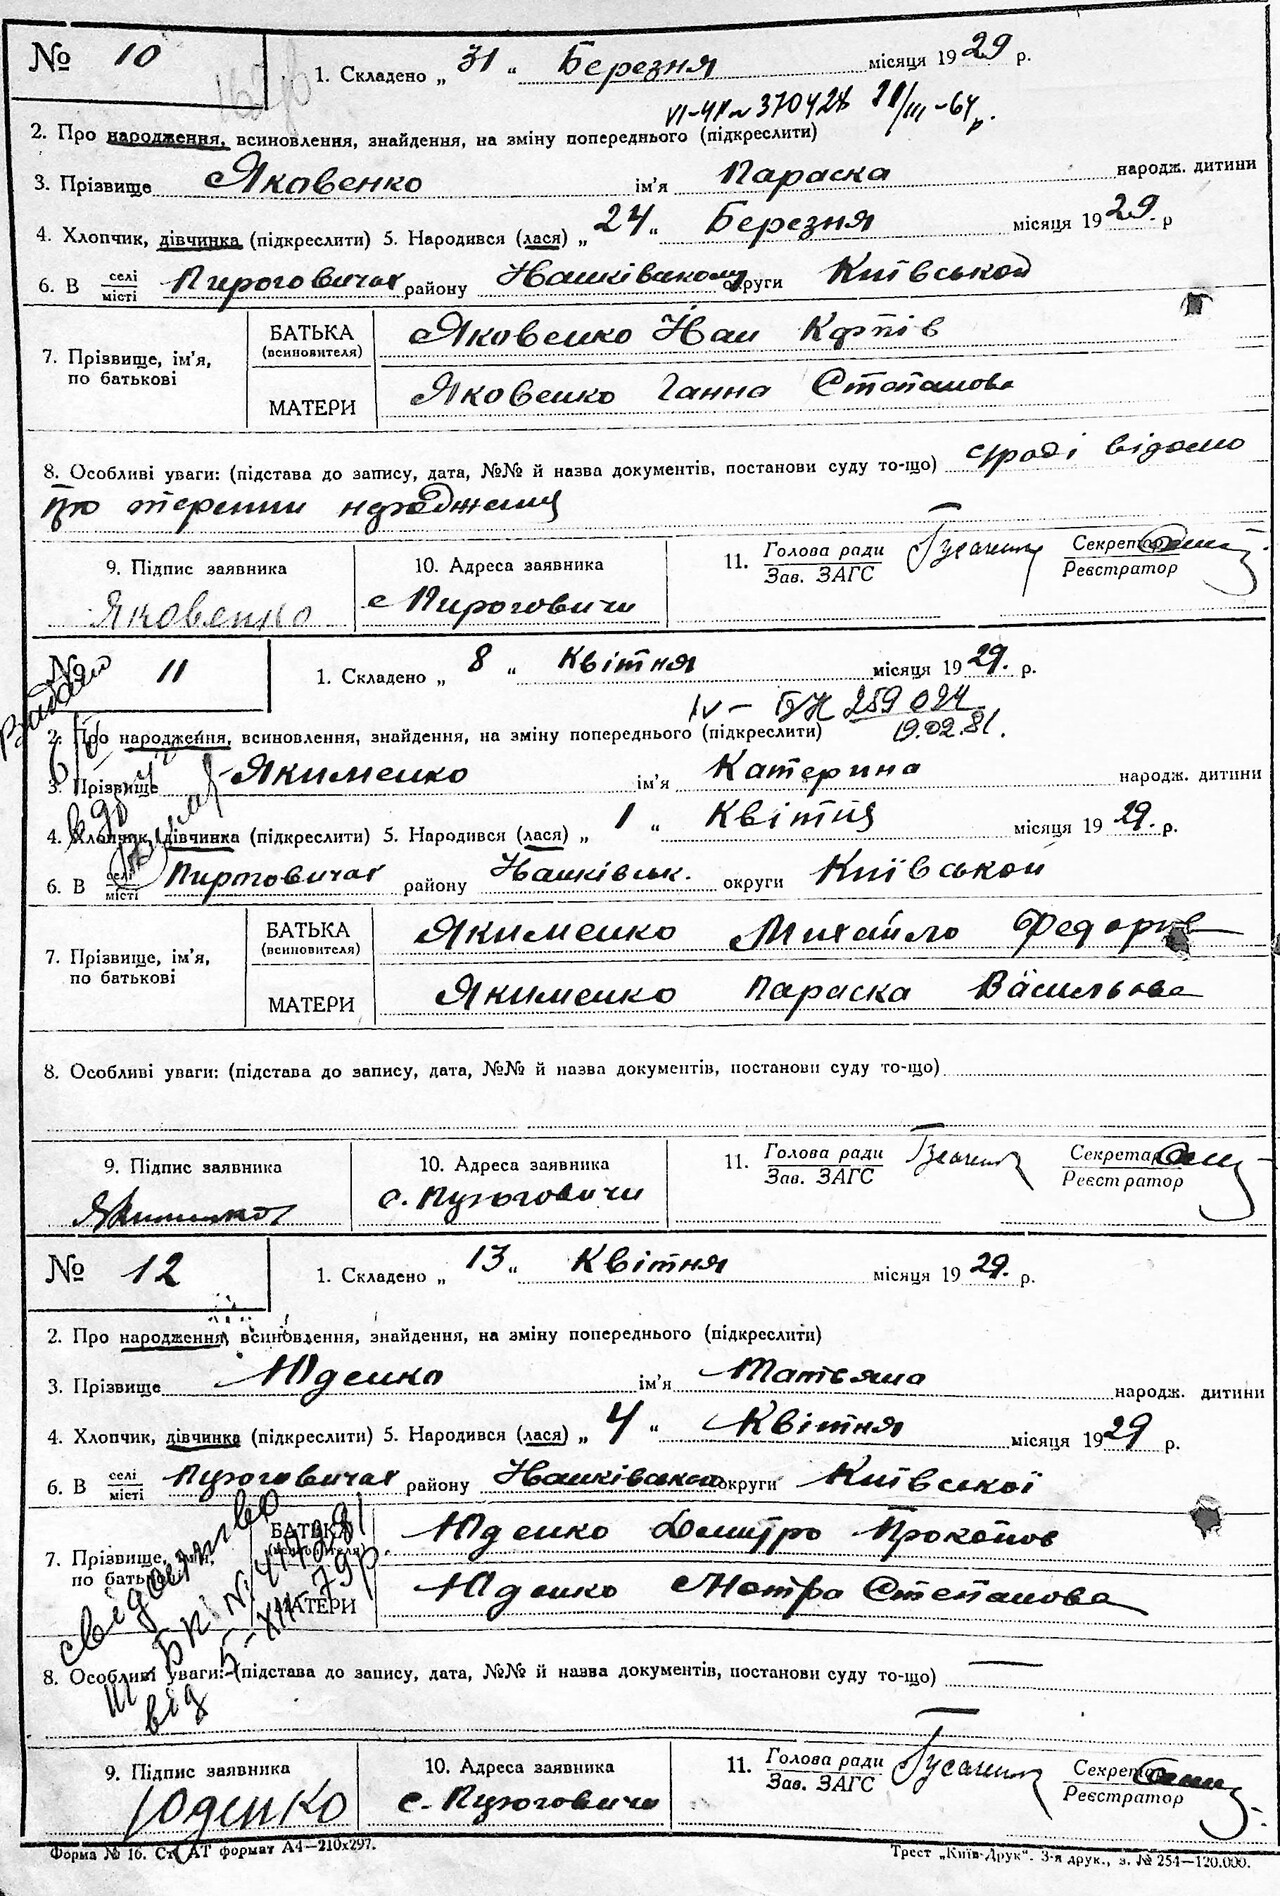 № 10 1. Складено „ 31 “ Березня місяця 1929 р.
VI-ЧК № 370428 21/III-64 р.
2. Про народження, всиновлення, знайдення, на зміну попереднього (підкреслити)
3. Прізвище Яковенко ім'я Параска народж. дитини
4. Хлопчик, дівчинка (підкреслити) 5. Народився (лася) „ 24 “ Березня місяця 1929. р
6. В селі/місті Пироговичах району округи Київської
7. Прізвище, ім'я, по батькові
БАТЬКА (всиновителя) Яковенко Іван
МАТЕРИ Яковенко Ганна Степанова
8. Особливі уваги: (підстава до запису, дата, №№ й назва документів, постанови суду то-що) сраді відомо
про термин народження
9. Підпис заявника 10. Адреса заявника 11. Голова ради / Зав. ЗАГС Секретар / Реєстратор
Яковенко с Пироговичи
№ 11 1. Складено „ 8 “ Квітня місяця 1929. р.
Видано
IV – 259024
19.02.81.
2. Про народження, всиновлення, знайдення, на зміну попереднього (підкреслити)
3. Прізвище Якименко ім'я Катерина народж. дитини
4. Хлопчик, дівчинка (підкреслити) 5. Народився (лася) „ 1 “ Квітня місяця 1929. р.
6. В селі/місті Пироговичах району округи Київської
7. Прізвище, ім'я, по батькові
БАТЬКА (всиновителя) Якименко Михайло Федорів
МАТЕРИ Якименко Параска Васильова
8. Особливі уваги: (підстава до запису, дата, №№ й назва документів, постанови суду то-що)
9. Підпис заявника 10. Адреса заявника 11. Голова ради / Зав. ЗАГС Секретар / Реєстратор
Якименко с. Пироговичи
№ 12 1. Складено „ 13 “ Квітня місяця 1929. р.
2. Про народження, всиновлення, знайдення, на зміну попереднього (підкреслити)
3. Прізвище Юденко ім'я Татьяна народж. дитини
4. Хлопчик, дівчинка (підкреслити) 5. Народився (лася) „ 4 “ Квітня місяця 1929 р.
6. В селі/місті Пироговичах району округи Київської
7. Прізвище, ім'я, по батькові
БАТЬКА (всиновителя) Юденко Дмитро Прокопов
МАТЕРИ Юденко Мотра Степанова
свідоцтво
III БК № 417281
від 5-XII-79р.
8. Особливі уваги: (підстава до запису, дата, №№ й назва документів, постанови суду то-що) —
9. Підпис заявника 10. Адреса заявника 11. Голова ради / Зав. ЗАГС Секретар / Реєстратор
Юденко с. Пироговичи
Форма № 16. Ст. АТ формат А4—210х297. Трест „Київ-Друк“. 3-я друк., з. № 254—120.000.